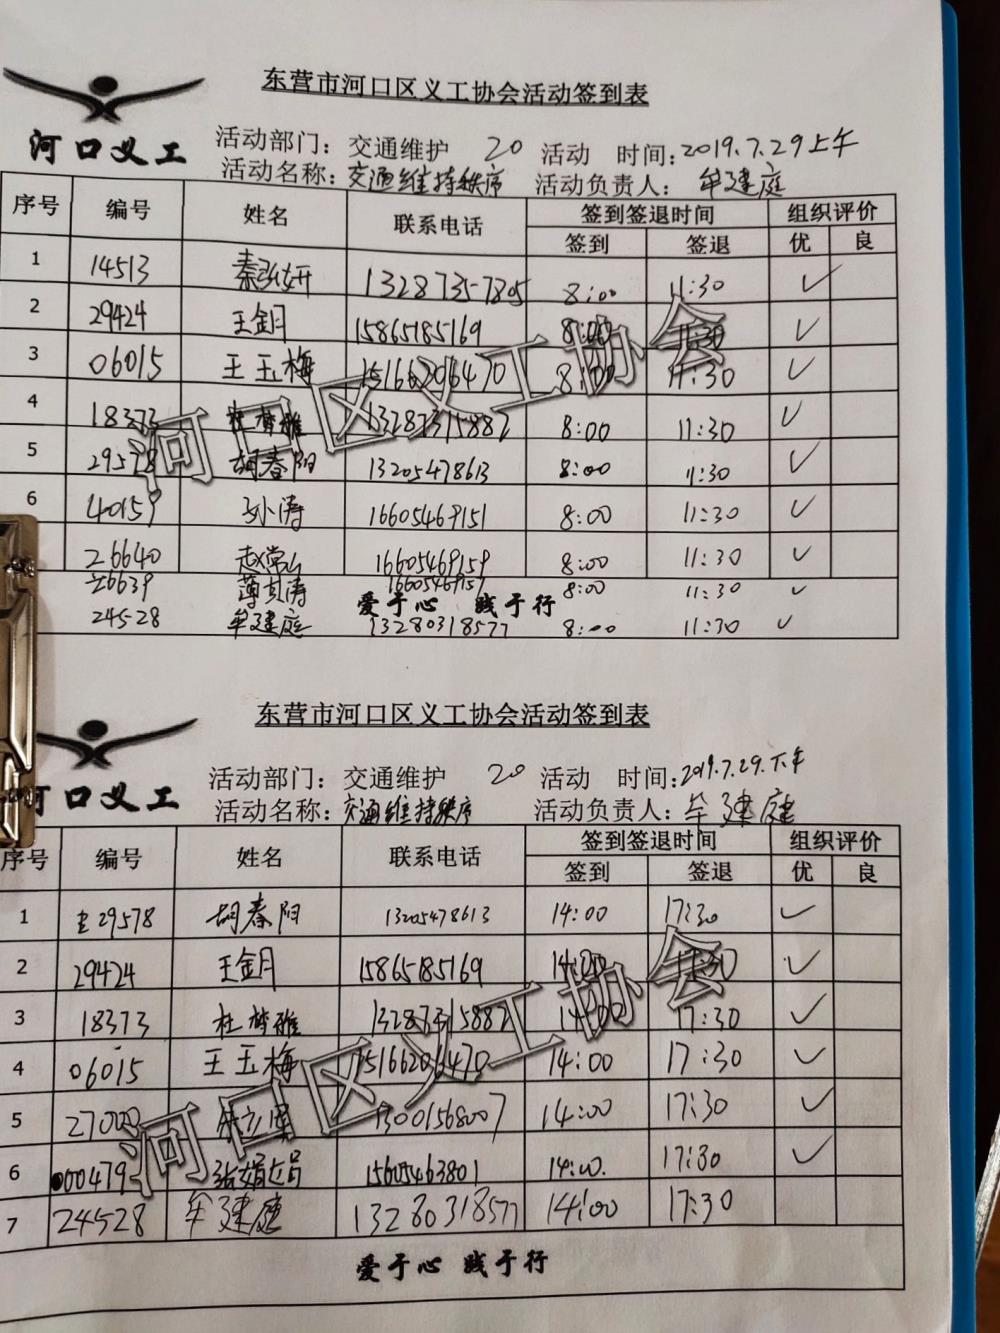 东营市河口区义工协会活动签到表
河口义工
活动部门：交通维护 20 活动 时间：2019.7.29上午
活动名称：交通维持秩序 活动负责人：牟建庭
序号 编号 姓名 联系电话 签到签退时间 组织评价
签到 签退 优 良
1 14513 秦 13287357805 8:00 11:30 ✓
2 29424 王金月 15865185169 8:00 11:30 ✓
3 06015 王玉梅 15166206470 8:00 11:30 ✓
4 18373 杜梦雅 13287315882 8:00 11:30 ✓
5 29578 胡秦阳 13205478613 8:00 11:30 ✓
6 40159 孙涛 16605469151 8:00 11:30 ✓
26640 赵常山 16605469159 8:00 11:30 ✓
26639 薄其涛 1660546915 8:00 11:30 ✓
爱于心 践于行
24528 牟建庭 13280318577 8:00 11:30 ✓
河口区义工协会
东营市河口区义工协会活动签到表
河口义工
活动部门：交通维护 20 活动 时间：2019.7.29.下午
活动名称：交通维持秩序 活动负责人：牟建庭
序号 编号 姓名 联系电话 签到签退时间 组织评价
签到 签退 优 良
1 29578 胡秦阳 13205478613 14:00 17:30 ✓
2 29424 王金月 15865185169 14:00 17:30 ✓
3 18373 杜梦雅 13287315882 14:00 17:30 ✓
4 06015 王玉梅 15166206470 14:00 17:30 ✓
5 13001568007 14:00 17:30 ✓
6 000479 15605463801 14:00. 17:30 ✓
7 24528 牟建庭 13280318577 14:00 17:30
河口区义工协会
爱于心 践于行